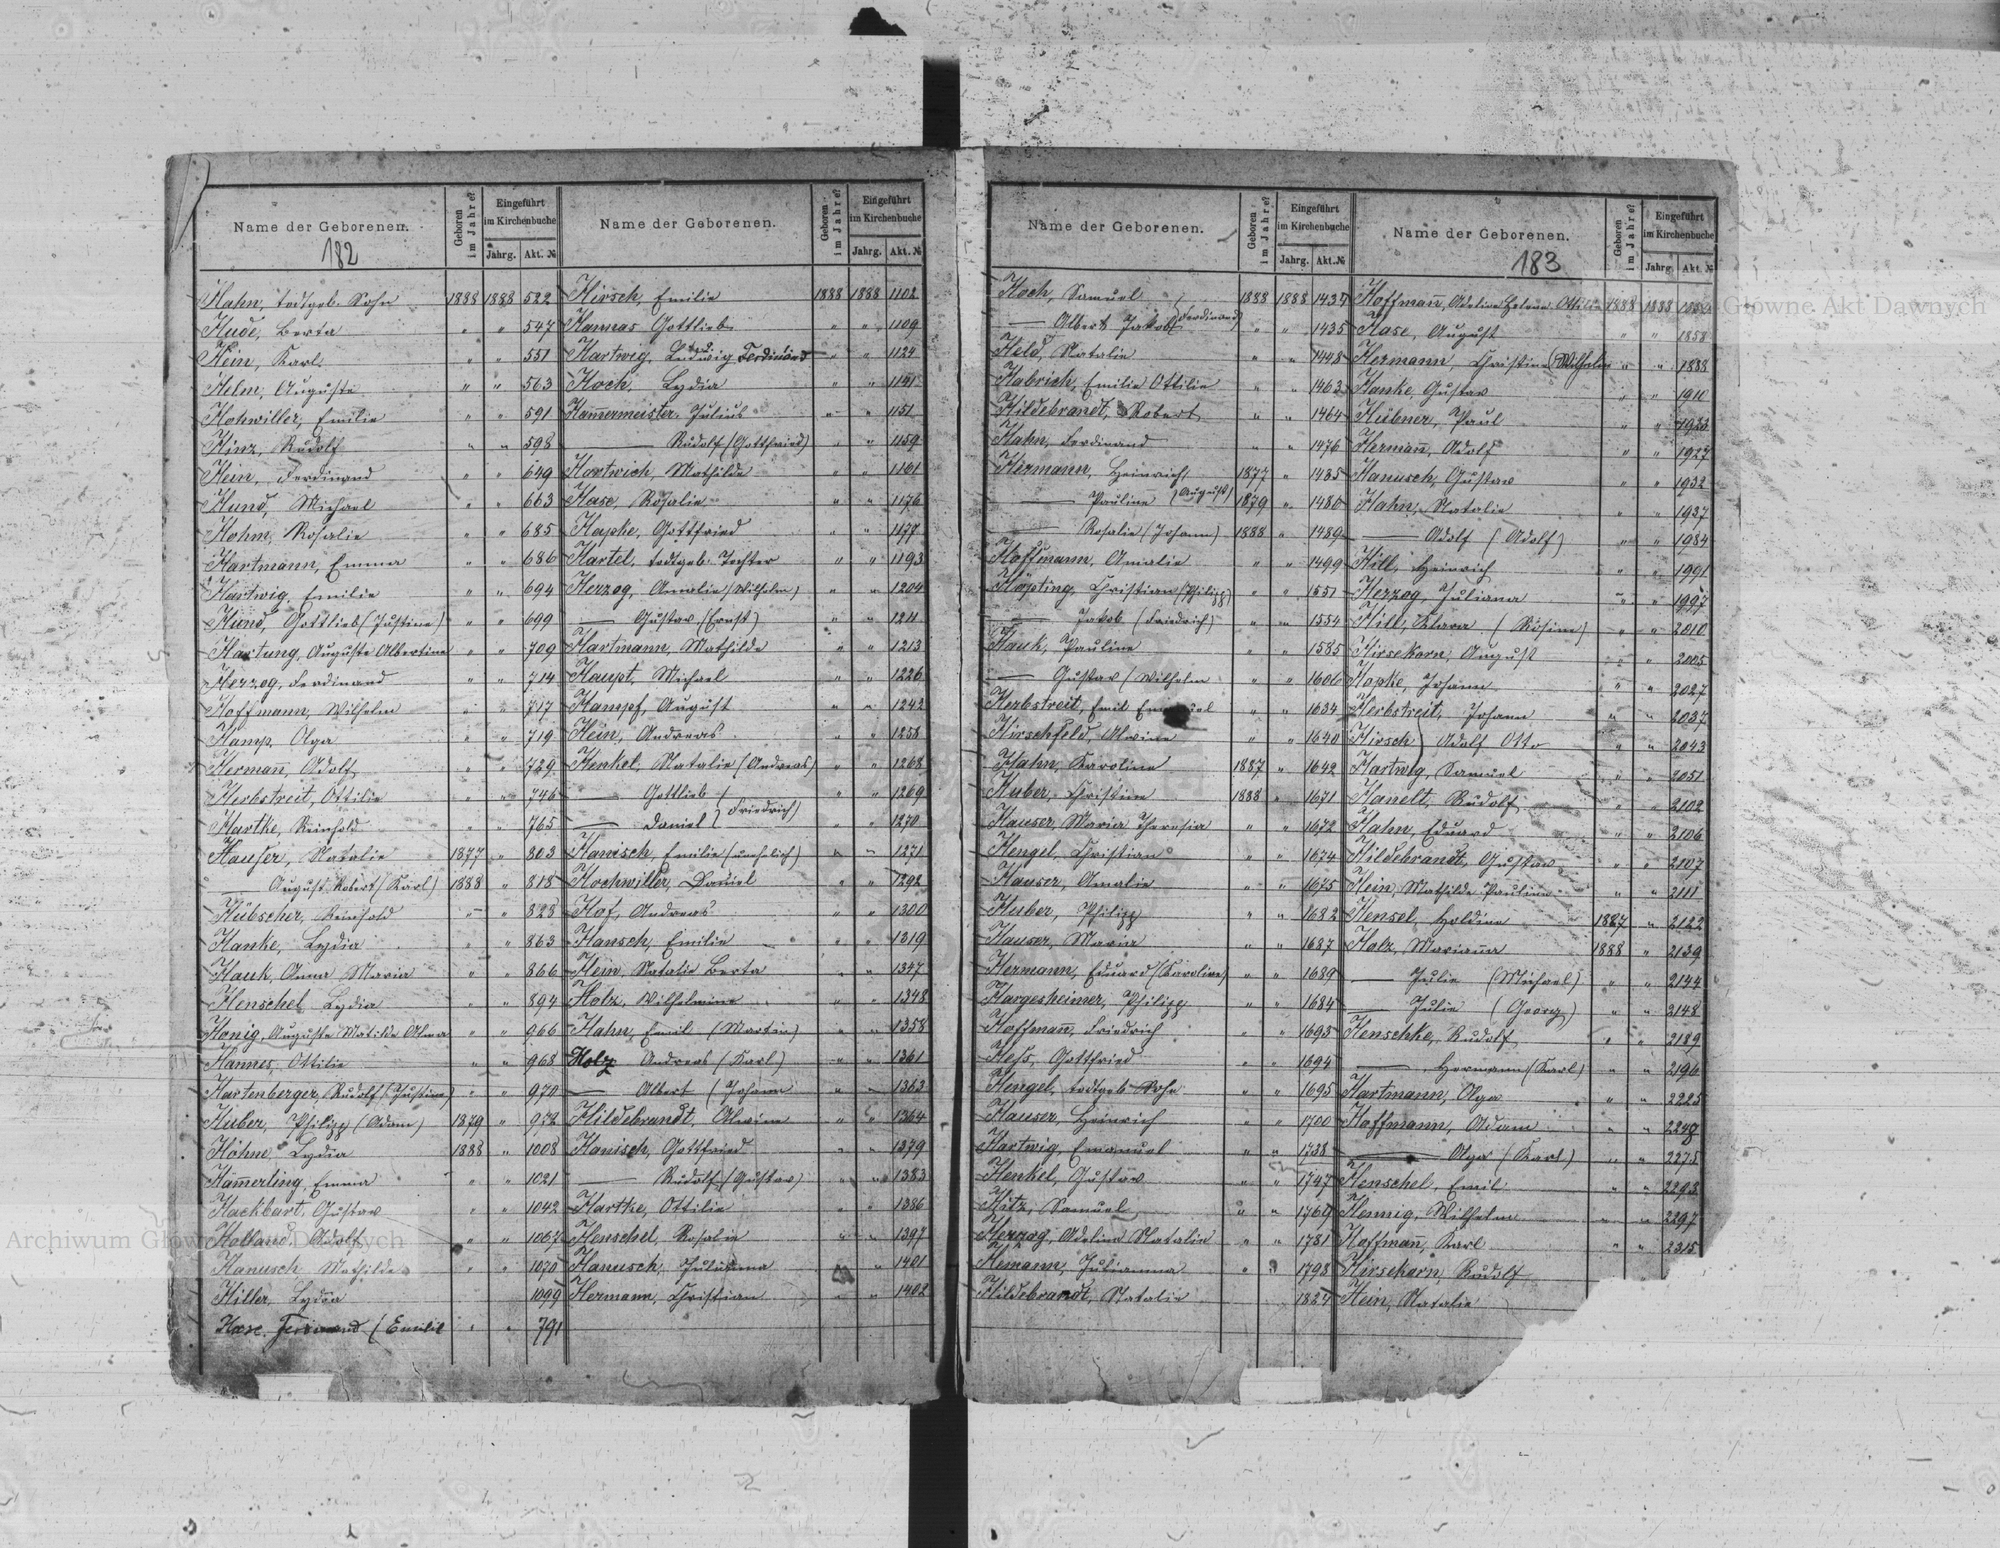 Name der Geborenen.
Geboren im Jahre?
Eingeführt im Kirchenbuche
Jahrg.
Akt. №
182
Hahn, todtgeb. Sohn 1888 1888 522
Hude, Berta " " 547
Hein, Karl " " 551
Helm, Auguste " " 563
Hohwiller, Emilie " " 591
Hinz, Rudolf " " 598
Hein, Ferdinand " " 649
Hund, Michael " " 663
Hohm, Rosalie " " 685
Hartmann, Emma " " 686
Hartwig, Emilie " " 694
Hund, Gottlieb (Justine) " " 699
Hartung, Auguste Albertine " " 709
Herzog, Ferdinand " " 714
Hoffmann, Wilhelm " " 717
Hamp, Olga " " 719
Hermañ, Adolf " " 729
Herbstreit, Ottilie " " 746
Hartke, Reinhold " " 765
Hauser, Natalie 1877 " 803
— August Robert (Karl) 1888 " 818
Hübscher, Reinhold " " 828
Hanke, Lydia " " 863
Hauk, Anna Maria " " 866
Henschel, Lydia " " 894
Honig, Auguste Matilde Alma " " 966
Hannes, Ottilie " " 968
Hartenberger, Rudolf (Justine) " " 970
Huber, Philipp (Adam) 1879 " 972
Höhne, Lydia 1888 " 1008
Ham̃erling, Emma " " 1021
Hackbart, Gustav " " 1042
Holland, Adolf " " 1062
Hanusch, Mathilde " " 1070
Hiller, Lydia 1099
Hase, Ferdinand (Emilie " " 791
Name der Geborenen.
Geboren im Jahre?
Eingeführt im Kirchenbuche
Jahrg.
Akt. №
Hirsch, Emilie 1888 1888 1102
Hannas Gottlieb " " 1109
Hartwig, Ludwig Ferdinand " " 1124
Hoch, Lydia " " 1141
Ham̃ermeister, Julius " " 1151
— Rudolf (Gottfried) " " 1159
Hartwich, Mathilde " " 1161
Hase, Rosalie " " 1176
Hapke, Gottfried " " 1177
Hartel, todtgeb. Tochter " " 1193
Herzog, Amalie (Wilhelm) " " 1204
— Gustav (Ernst) " " 1211
Hartmann, Mathilde " " 1213
Haupt, Michael " " 1226
Hampf, August " " 1242
Hein, Andreas " " 1258
Henkel, Natalie (Andreas) " " 1268
— Gottlieb " " 1269
— Daniel (Friedrich) " " 1270
Hanisch, Emilie (unehelich) " " 1271
Hochwiller, Daniel " " 1292
Hof, Andreas " " 1300
Hansch, Emilie " " 1319
Hein, Natalie Berta " " 1347
Holz, Wilhelmine " " 1348
Hahn, Emil (Martin) " " 1358
Holz Andreas (Karl) " " 1361
— Albert (Johann " " 1363
Hildebrandt, Alwine " " 1364
Hanisch, Gottfried " " 1379
— Rudolf (Gustav) " " 1383
Hartke, Ottilie " " 1386
Henschel, Rosalie " " 1397
Hanusch, Julianna " " 1401
Hermann, Christian " " 1402
Name der Geborenen.
Geboren im Jahre?
Eingeführt im Kirchenbuche
Jahrg.
Akt. №
Hoch, Samuel 1888 1888 1434
— Albert Jakob (Ferdinand) " " 1435
Held, Natalie " " 1448
Habrich, Emilie Ottilie " " 1463
Hildebrandt, Robert " " 1464
Hahn, Ferdinand " " 1476
Hermann, Heinrich 1877 " 1485
— Pauline (August) 1879 " 1486
— Rosalie (Johann) 1888 " 1489
Hoffmann, Amalie " " 1499
Höpting, Christian (Philipp) " " 1551
— Jakob (Friedrich) " " 1554
Hauk, Pauline " " 1585
— Gustav (Wilhelm " " 1606
Herbstreit, Emil " " 1634
Hirschfeld, Alwine " " 1640
Hahn, Karoline 1887 " 1642
Huber, Christine 1888 " 1671
Hauser, Maria Theresia " " 1672
Hengel, Christian " " 1674
Hauser, Amalie " " 1675
Huber, Philipp " " 1682
Hauser, Maria " " 1687
Hermann, Eduard (Karoline) " " 1689
Hargesheimer, Philipp " " 1684
Hoffmañ, Friedrich " " 1693
Hess, Gottfried " " 1694
Hengel, todtgeb. Sohn " " 1695
Hauser, Heinrich " " 1700
Hartwig, Emanuel " " 1738
Henkel, Gustav " " 1747
Hitz, Samuel " " 1769
Herzog, Adeline Natalie " " 1781
Hemann, Julianna " " 1798
Hildebrandt, Natalie 1827
Name der Geborenen.
Geboren im Jahre?
Eingeführt im Kirchenbuche
Jahrg.
Akt. №
183
Hoffmañ, Adeline Helene Ottilie 1888 1888
Hase, August " " 1858
Hermann, Christine (Wilhelm " " 1888
Hanke, Gustav " " 1910
Hübner, Paul " " 1923
Hermañ, Adolf " " 1927
Hanusch, Gustav " " 1932
Hahn, Natalie " " 1937
— Adolf (Adolf) " " 1984
Hill, Heinrich " " 1991
Herzog, Juliana " " 1997
Hill, Klara (Rosine) " " 2010
Hirsekorn, August " " 2005
Hopke, Johann " " 2027
Herbstreit, Johann " " 2037
Hirsch, Adolf Otto " " 2043
Hartwig, Samuel " " 2051
Hanelt, Rudolf " " 2102
Hahn, Eduard " " 2106
Hildebrandt, Gustav " " 2107
Hein, Mathilde Pauline " " 2111
Hensel, Holdine 1887 " 2122
Holz, Mariaña 1888 " 2139
— Julie (Michael) " " 2144
— Julie (Georg) " " 2148
Henschke, Rudolf " " 2189
— Hermann (Karl) " " 2196
Hartmann, Olga " " 2225
Hoffmann, Adam " " 2248
— Olga (Karl) " " 2275
Henschel, Emil " " 2293
Hennig, Wilhelm " " 2297
Hoffmañ, Karl " " 2315
Hirsekorn, Rudolf
Hein, Natalie
Archiwum Główne Akt Dawnych
Główne Akt Dawnych